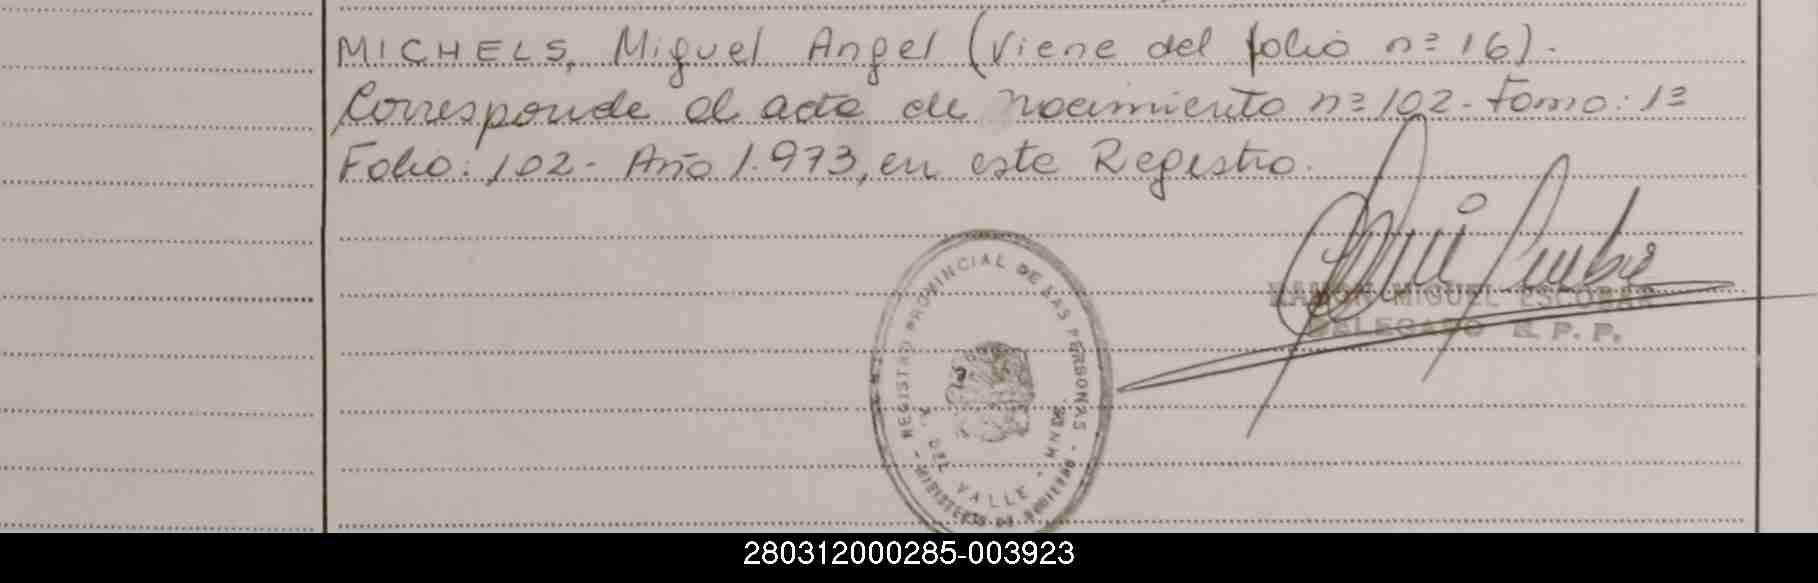 MICHELS, Miguel Angel (Viene del folio nº 16).
Corresponde al acta de nacimiento nº 102 - Tomo: 1º
Folio: 102 - Año 1.973, en este Registro.
RAMON MIGUEL ESCOBAR
DELEGADO R. P. P.
REGISTRO PROVINCIAL DE LAS PERSONAS - MINISTERIO DE GOBIERNO -
DEL VALLE -
280312000285-003923